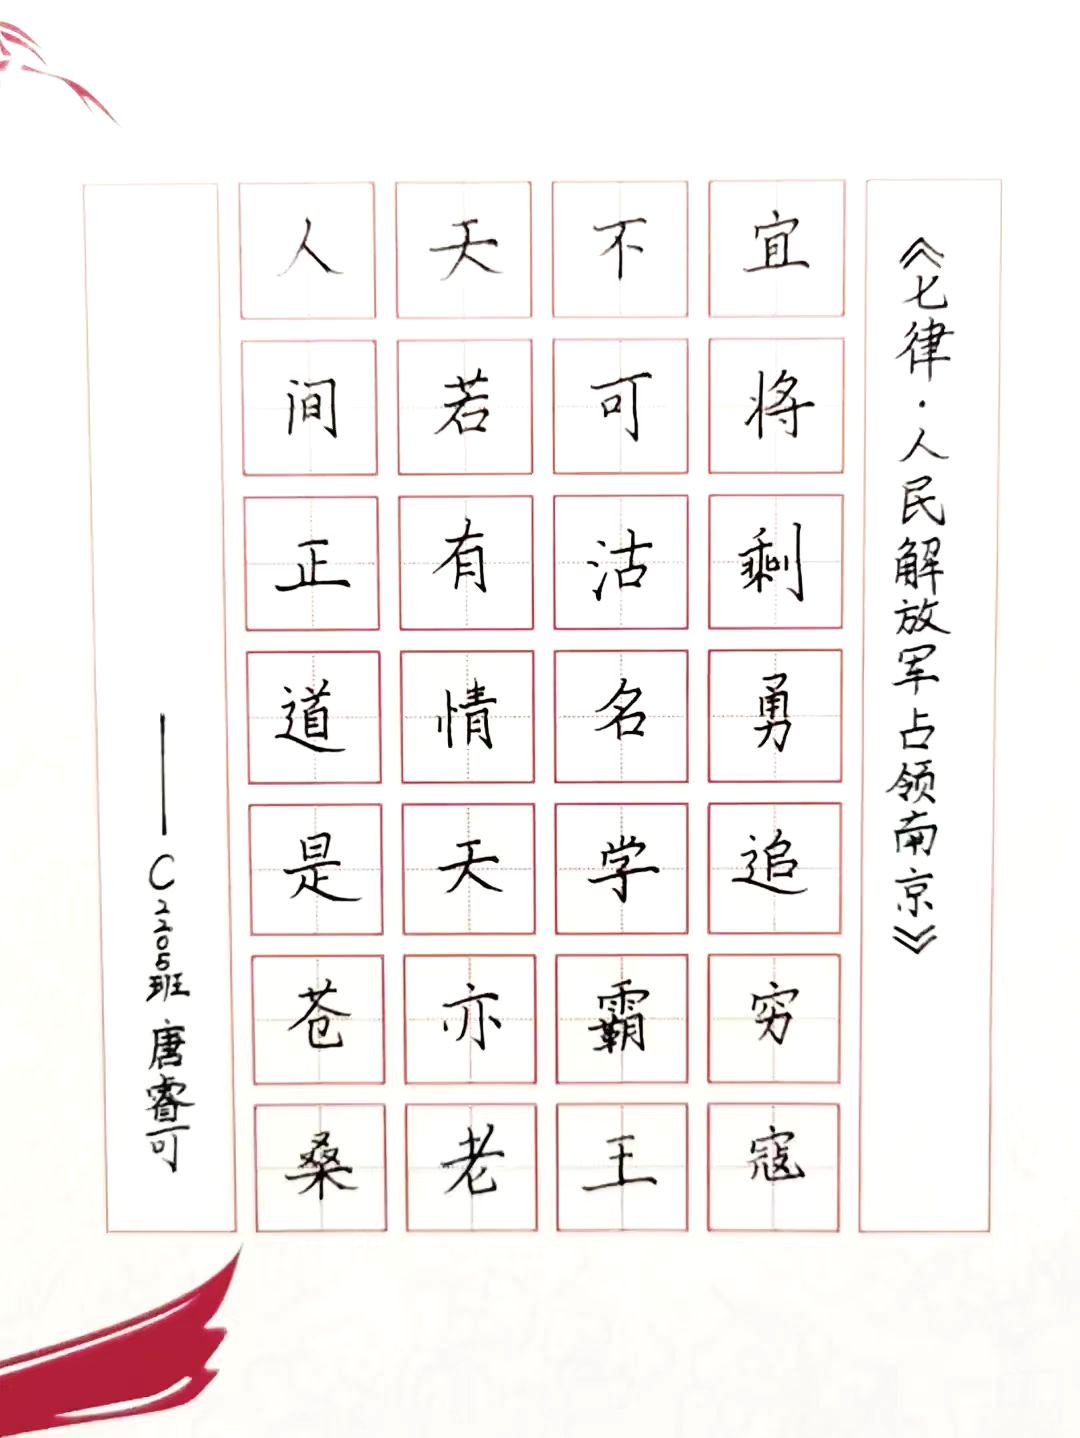 《七律·人民解放军占领南京》
宜将剩勇追穷寇
不可沽名学霸王
天若有情天亦老
人间正道是苍桑
——C2205班 唐睿可